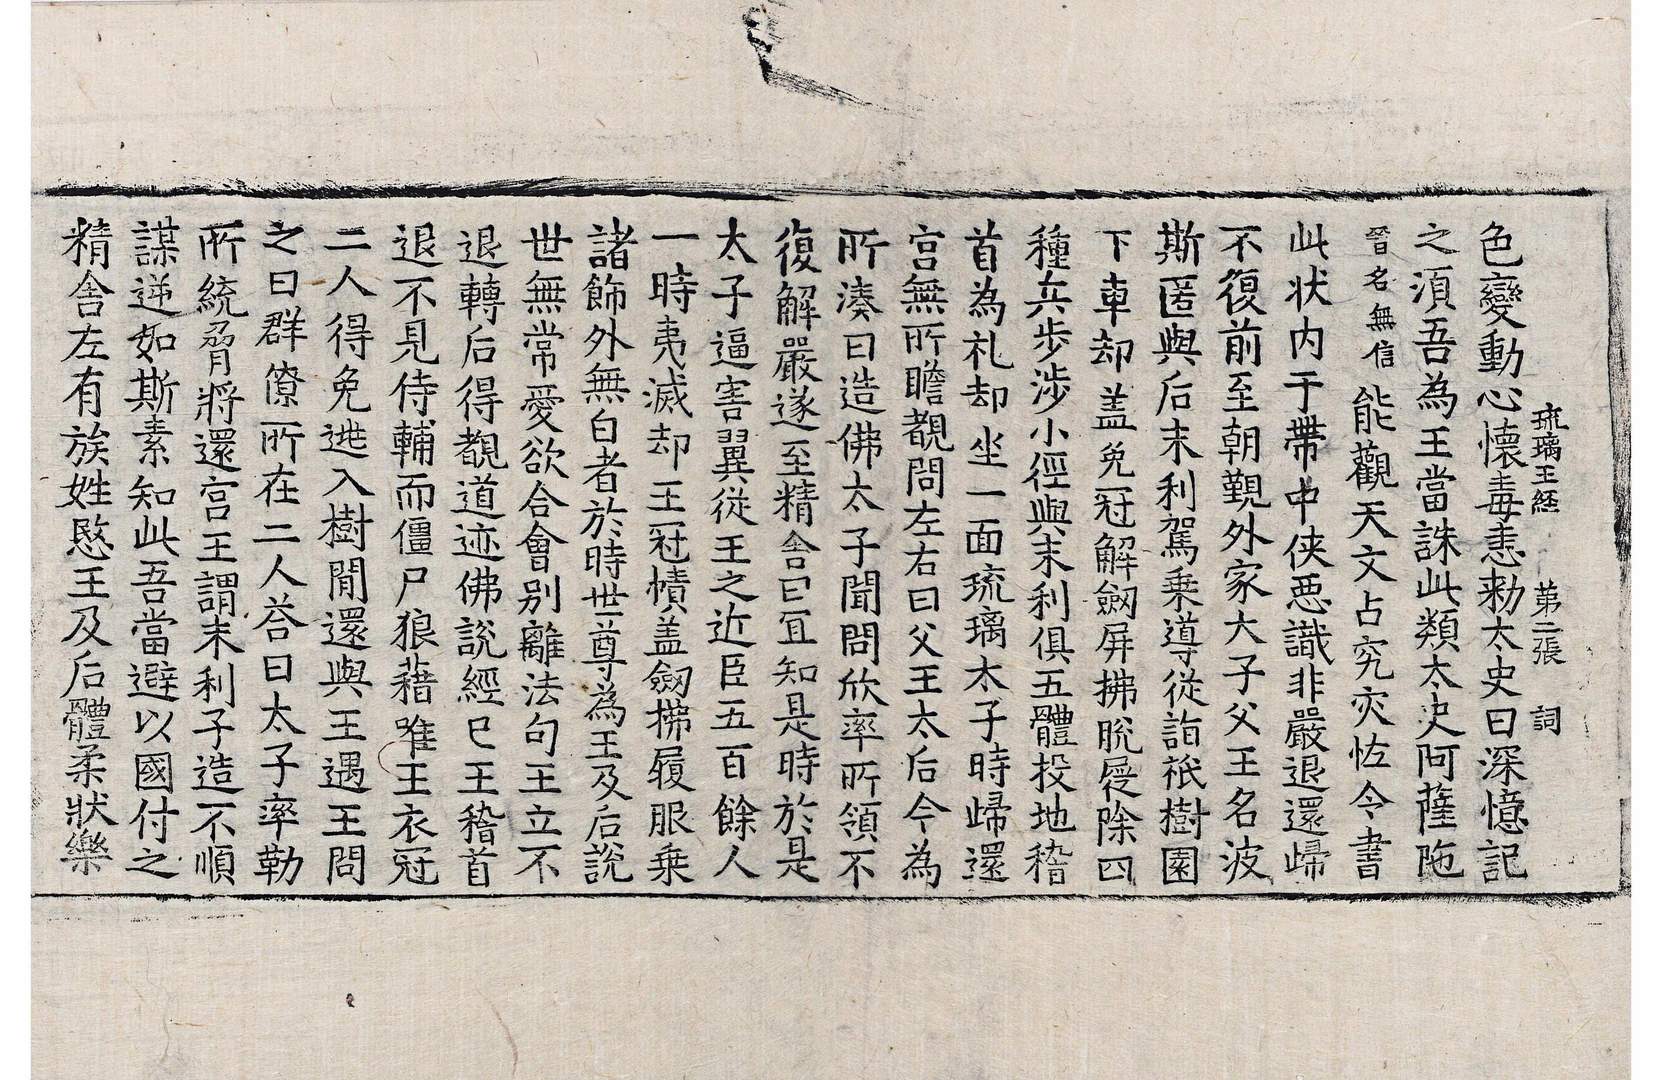 琉璃王経 第二張 詞
色變動心懷毒恚勑太史曰深憶記
之湏吾為王當誅此類太史阿薩陁
晉名無信能觀天文占究灾恠令書
此状内于帶中侠悪識非嚴退還歸
不復前至朝覲外家大子父王名波
斯匿與后末利駕乗導從詣祇樹園
下車却盖免冠解劔屏拂脫屣除四
種兵步涉小徑與末利俱五體投地稽
首為礼却坐一面琉璃太子時歸還
宫無所瞻覩問左右曰父王太后今為
所湊曰造佛太子聞問欣率所領不
復解嚴遂至精舎曰冝知是時於是
太子逼害翼従王之近臣五百餘人
一時夷滅却王冠幘盖劔拂履服乗
諸飾外無白者於時世尊為王及后說
世無常愛欲合會别離法句王立不
退轉后得覩道迹佛說經已王稽首
退不見侍輔而僵尸狼藉唯王衣冠
二人得免迯入樹間還與王遇王問
之曰群僚所在二人荅曰太子率勒
所統脅將還宫王謂末利子造不順
謀逆如斯素知此吾當避以國付之
精舎左有族姓愍王及后體柔狀樂